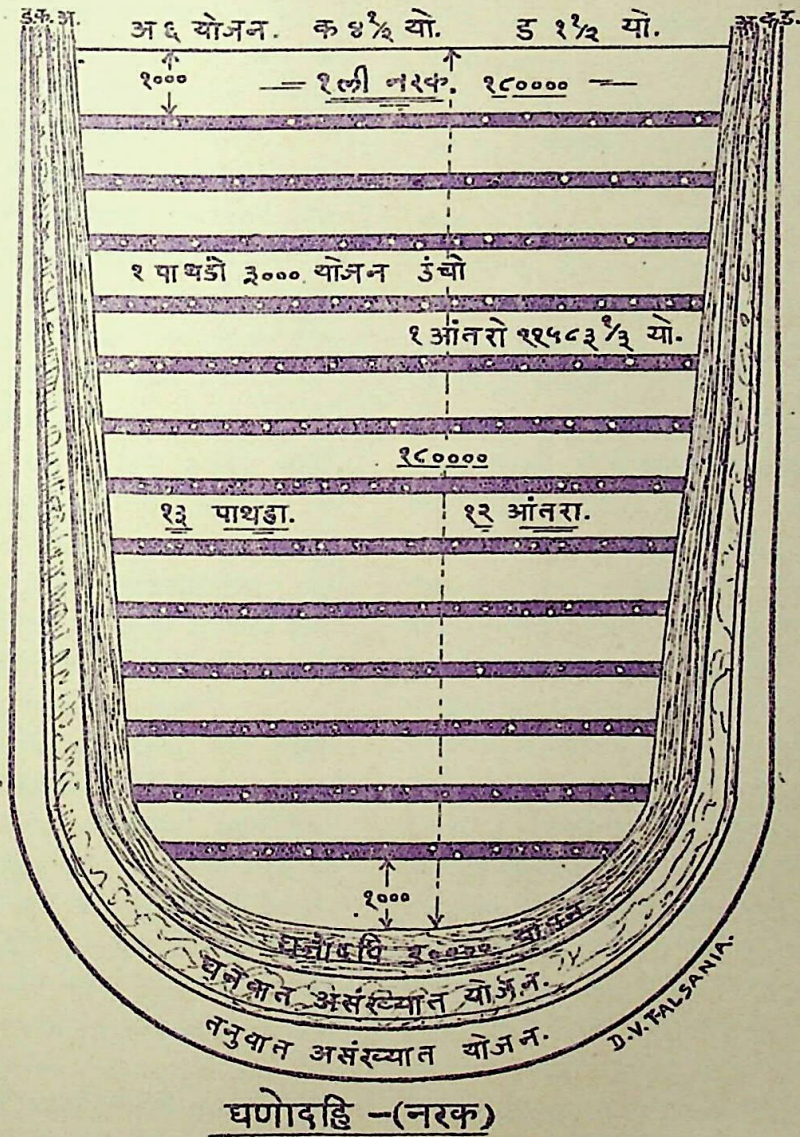 ड.क.अ. अ ६ योजन. क ४१/२ यो. ड ११/२ यो. अ.क.ड.
१००० १ली नरक. १८००००
१ पाथडो ३००० योजन उंचो
१ आंतरो ११५८३१/३ यो.
१८००००
१३ पाथडा. १२ आंतरा.
१०००
घनोदधि २०००० योजन
घनवात असंख्यात योजन.
तनुवात असंख्यात योजन.
D.V.FALSANIA.
घणोदहि -(नरक)